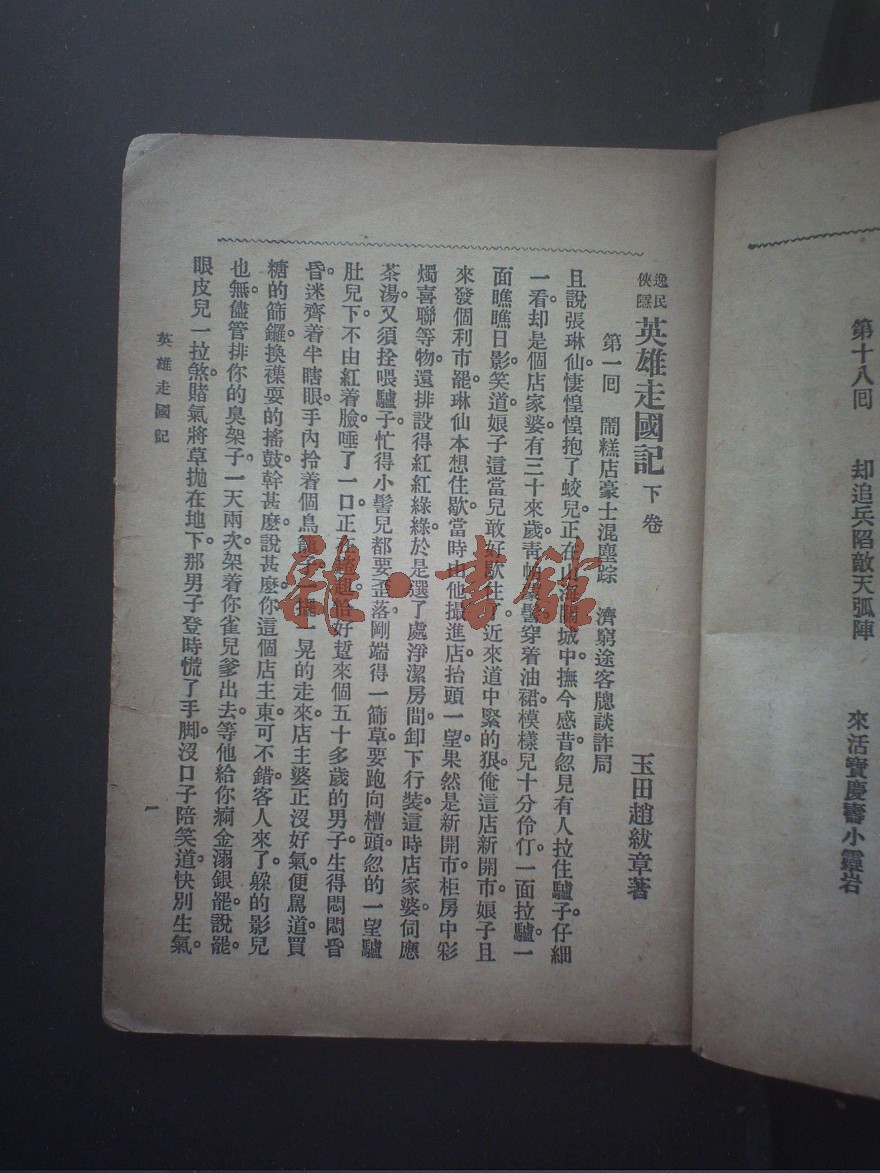 第十八回 却追兵陷敵天弧陣 來活寶慶壽小靈岩
逸民俠隱 英雄走國記 下卷 玉田趙紱章著
第一回 鬧糕店豪士混塵踪 濟窮途客牕談詐局
且說張琳仙悽惶惶抱了蛟兒正在山海關城中撫今感昔忽見有人拉住驢子。仔細
一看却是個店家婆。有三十來歲靑帕 髻穿着油裙。模樣兒十分伶仃。一面拉驢。一
面瞧瞧日影。笑道。娘子這當兒敢好歇住了。近來道中緊的狠。俺這店新開市。娘子且
來發個利市罷。琳仙本想住歇。當時由他撮進店。抬頭一望。果然是新開市。柜房中彩
燭喜聯等物。還排設得紅紅綠綠。於是選了處淨潔房間。卸下行裝。這時店家婆。伺應
茶湯。又須拴喂驢子。忙得小髻兒都要歪落。剛端得一篩草。要跑向槽頭。忽的一望驢
肚兒下。不由紅着臉。唾了一口。正在 恰好踅來個五十多歲的男子。生得悶悶昏
昏。迷齊着半瞎眼。手內拎着個鳥籠子。一擺一晃的走來。店主婆正沒好氣。便罵道。買
糖的篩鑼。換襪耍的搖鼓。幹甚麽說甚麽。你這個店主東。可不錯。客人來了。躲的影兒
也無。儘管排你的臭架子。一天兩次。架着你雀兒爹出去。等他給你痾金溺銀罷。說罷。
眼皮兒一拉煞。賭氣將草拋在地下。那男子登時慌了手脚。沒口子陪笑道。快別生氣。
英雄走國記
一
雜·書館